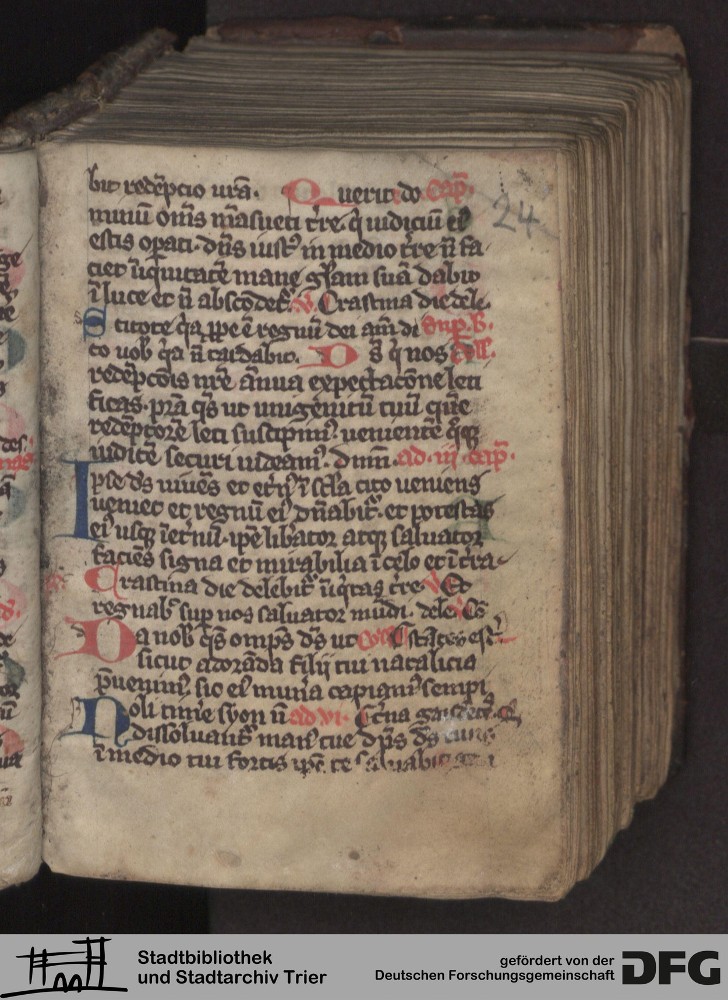 bit redēpcio ura. Querite do cap̄.
minū om̄s māsueti t̄re. q̄ iudiciū ei
estis opati. dn̄s iust in medio t̄re n̄ fa
ciet iniquitatē mane glam suā dabit
ī luce et n̄ abscōdet. v. Crastina die dele
Scitote q̄a ꝓpe ē regnū dei am̄ di
co uob q̄a n̄ tardabit. Ds q̄ nos
redēpcōis nr̄e ānua expectacōne leti
ficas. pr̄a q̄s ut unigenitū tuū quē
redēptorē leti suscipim. ueniente q̄q
iudicē securi uideam. dnm̄. ad iii cap̄.
Ipse ds uiuēs et et̄n ī sc̄la cito ueniens
ueniet et regnū ei dn̄abit. et potestas
ei usq īet̄nū. ip̄e lib̄ator atq saluator
faciēs signa et mirabilia ī celo et ī t̄ra
Crastina die delebit̄ iniq̄tas t̄re v. Et
regnab sup nos saluator mūdi. dele
Da nob q̄s omp̄s ds ut
sicut adorāda filij tui natalicia
p̄uenim. sic ei mun̄a capiam sempi
Noli tim̄e syon n̄ ad vi.
dissoluant man tue dn̄s ds tuus
ī medio tui fortis ip̄e te saluabit
24
Stadtbibliothek
und Stadtarchiv Trier
gefördert von der
Deutschen Forschungsgemeinschaft
DFG